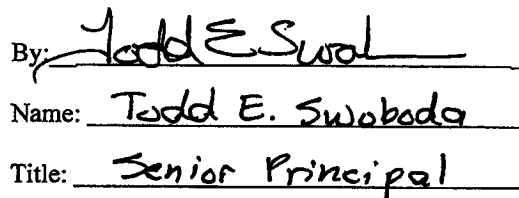 By: Todd E Swob
Name: Todd E. Swoboda
Title: Senior Principal